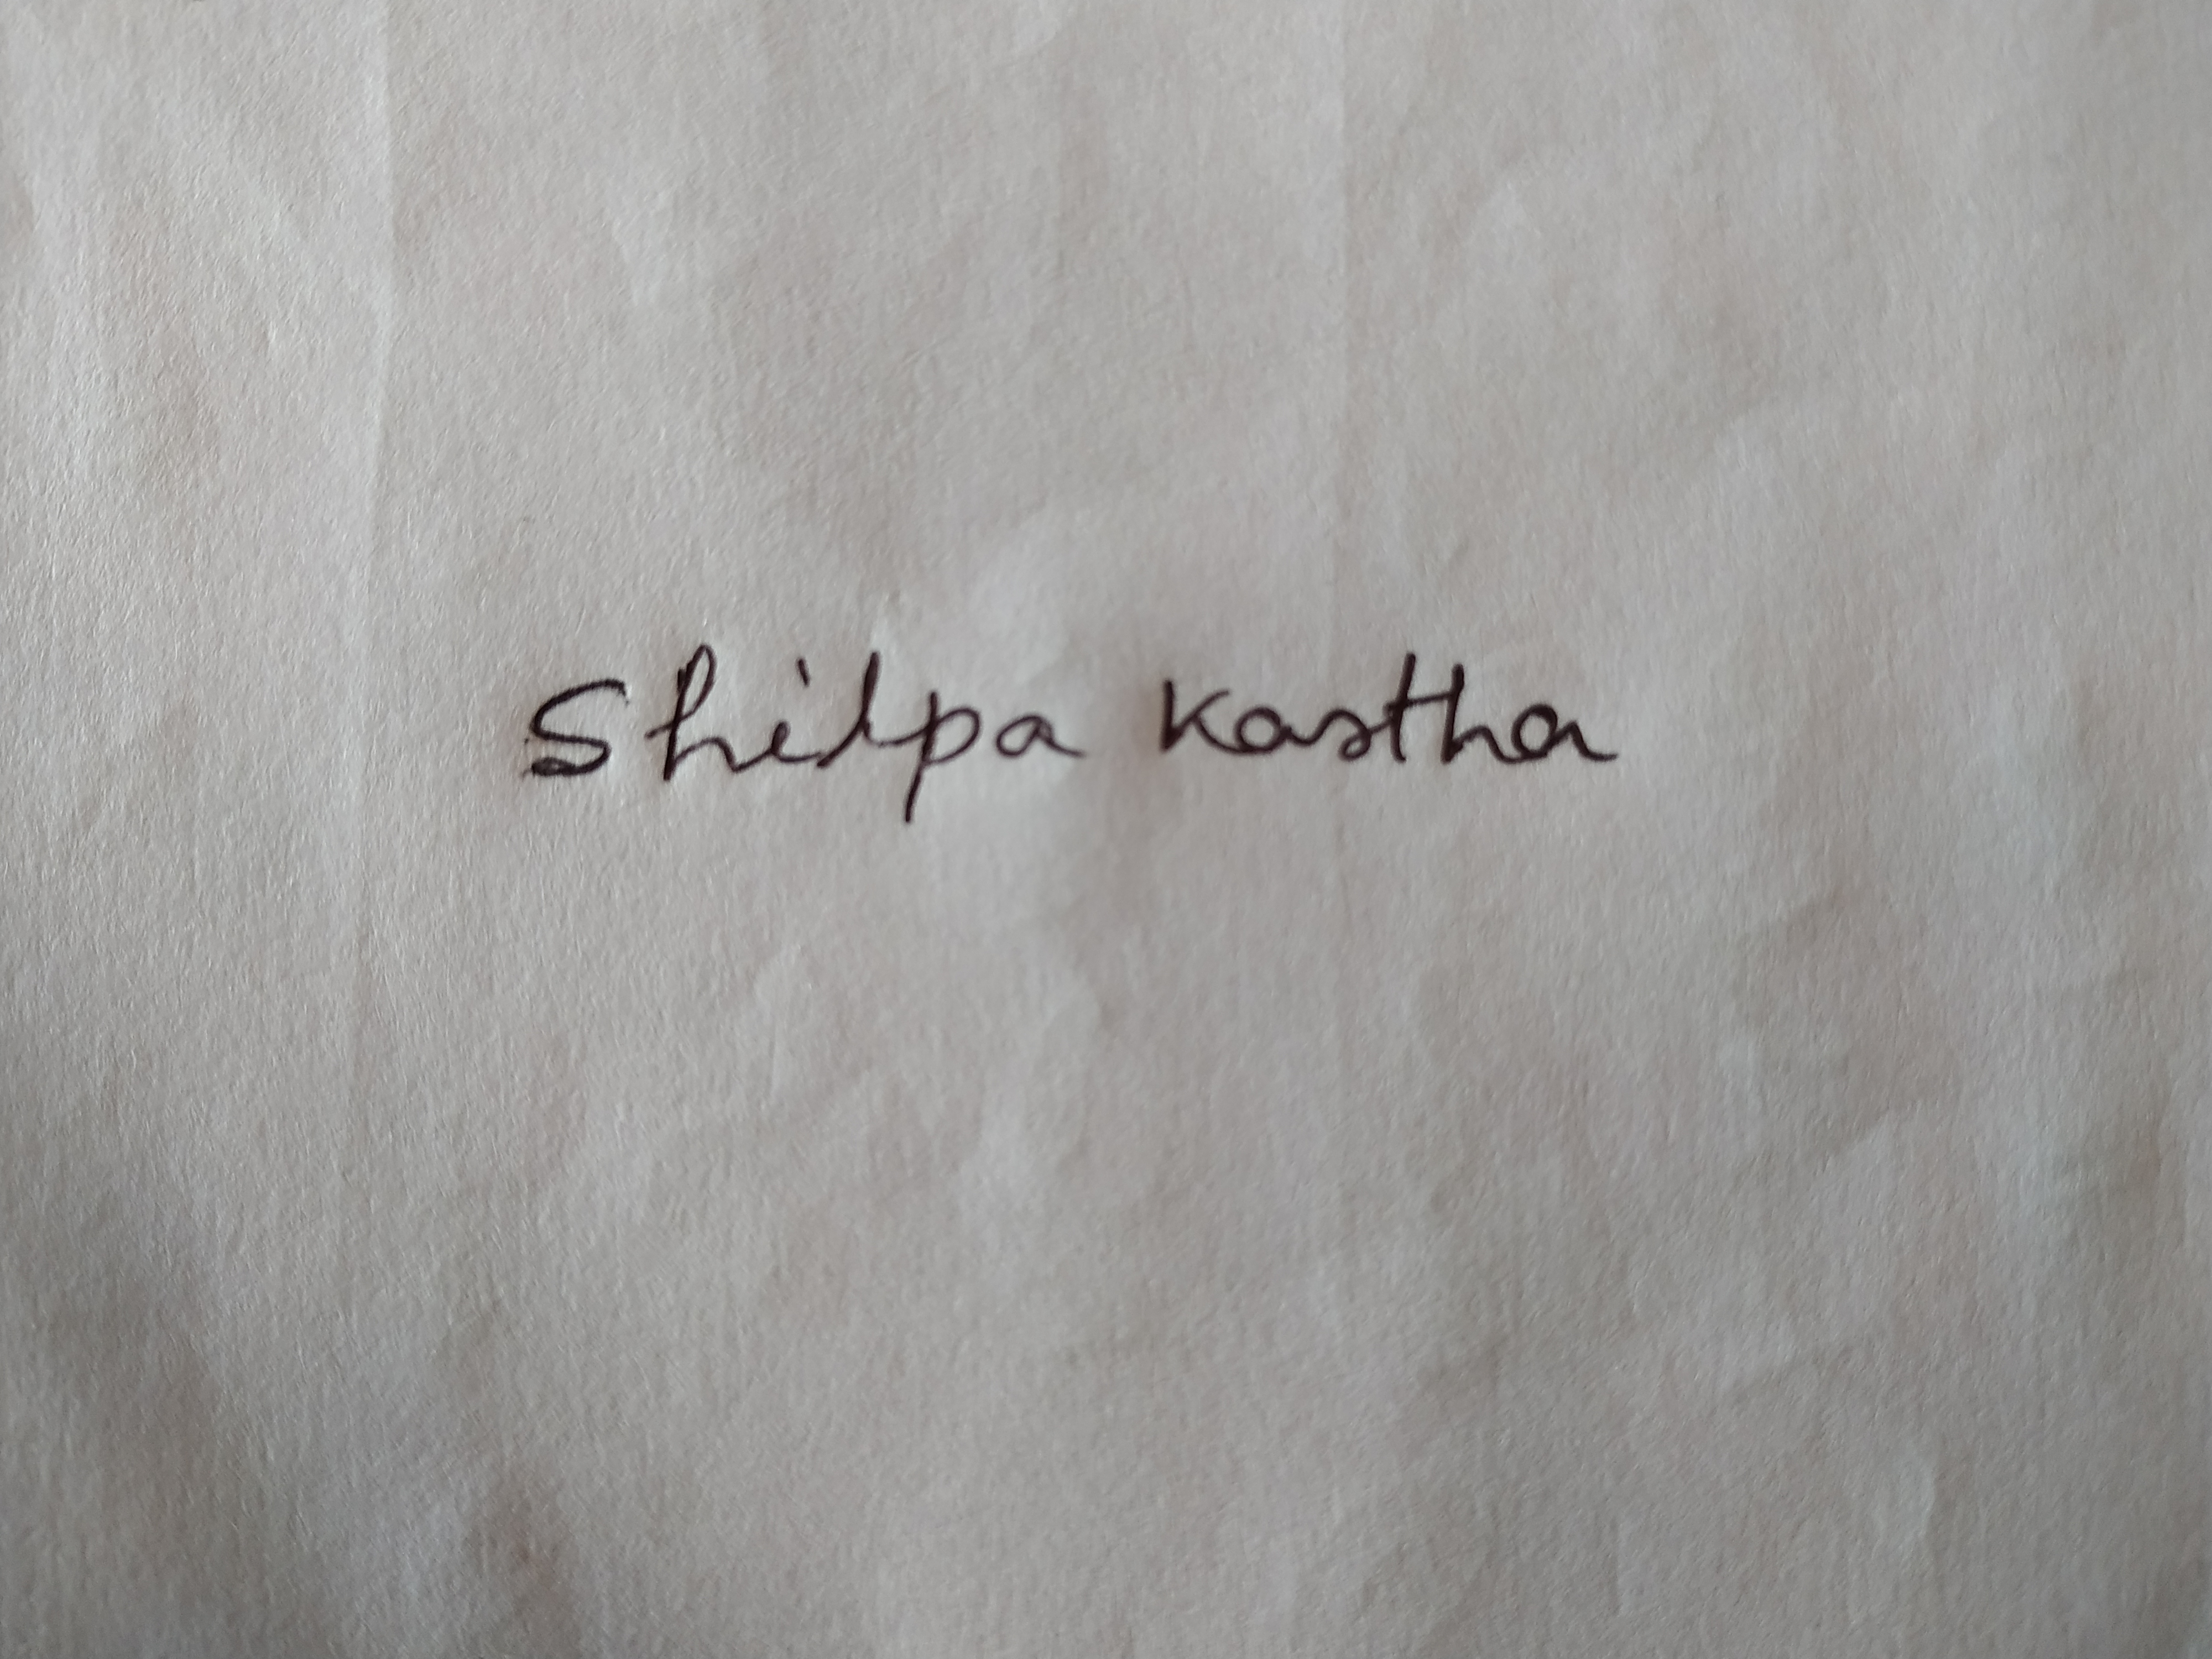 Shilpa Kastha